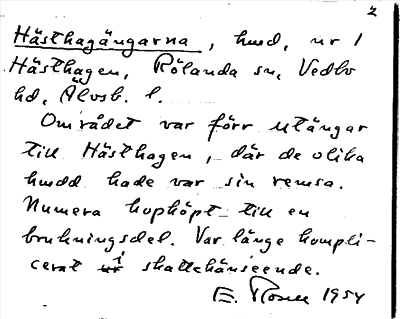 2
Hästhagängarna, hmd, nr 1
Hästhagen, Rölanda sn, Vedbo
hd, Älvsb. l.
Området var förr utängar
till Hästhagen, där de olika
hmdd hade var sin remsa.
Numera hopköpt till en
brukningsdel. Var länge kompli-
cerat i skattehänseende.
E. Rosen 1954